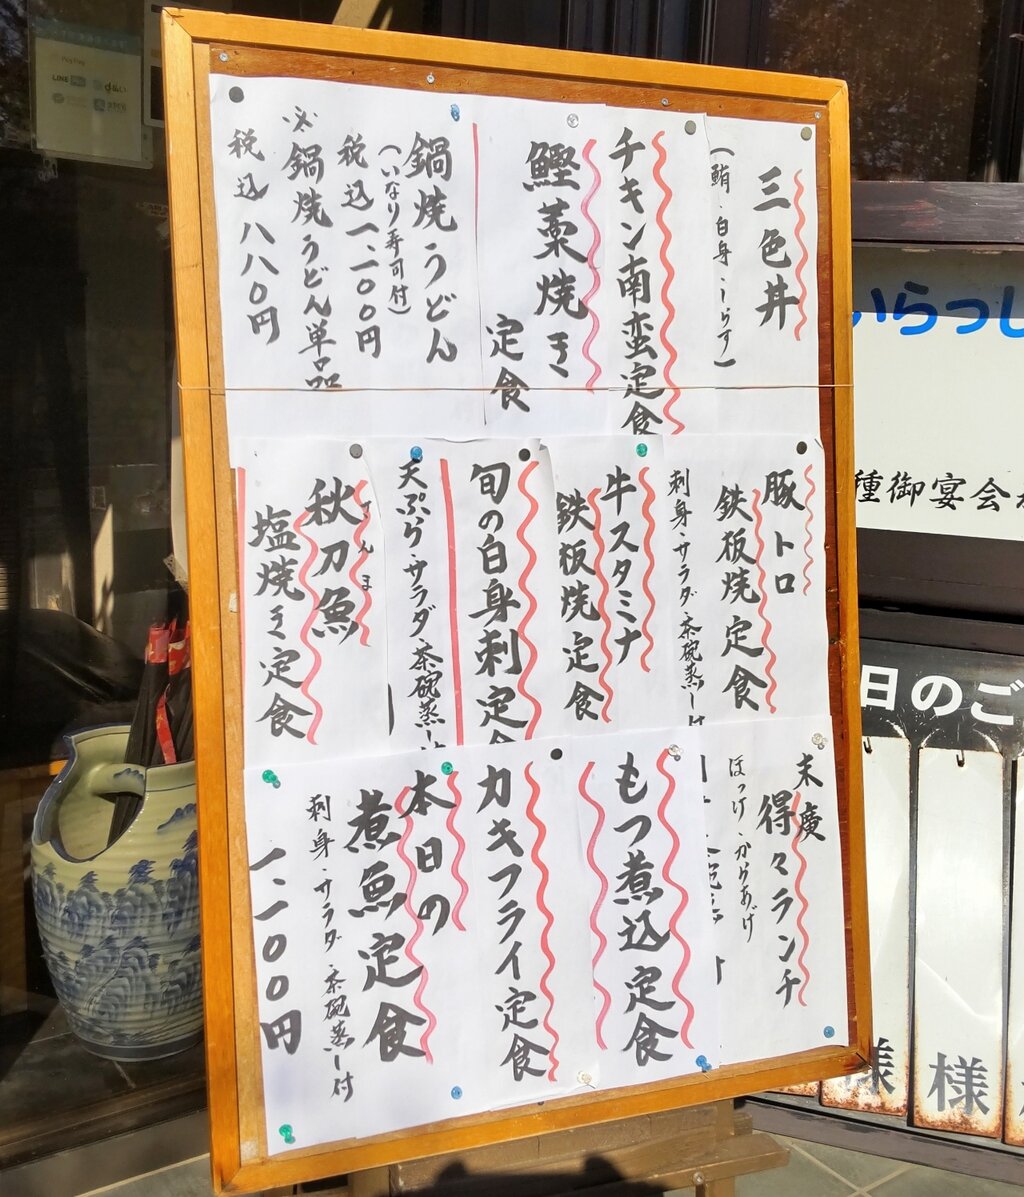 三色丼
(鮪・白身・しらす)
チキン南蛮定食
鰹藁焼き
定食
鍋焼うどん
(いなり寿司付)
税込一、一〇〇円
鍋焼うどん単品
税込八八〇円
豚トロ
鉄板焼定食
刺身・サラダ・茶碗蒸し付
牛スタミナ
鉄板焼定食
旬の白身刺定食
天ぷら・サラダ・茶碗蒸し
さんま
秋刀魚
塩焼き定食
末廣
得々ランチ
ほっけ・からあげ
もつ煮込定食
カキフライ定食
本日の
煮魚定食
刺身・サラダ・茶碗蒸し付
一、一〇〇円
いらっし
種御宴会
日のご
様
様
LINE
PayPay
d払い